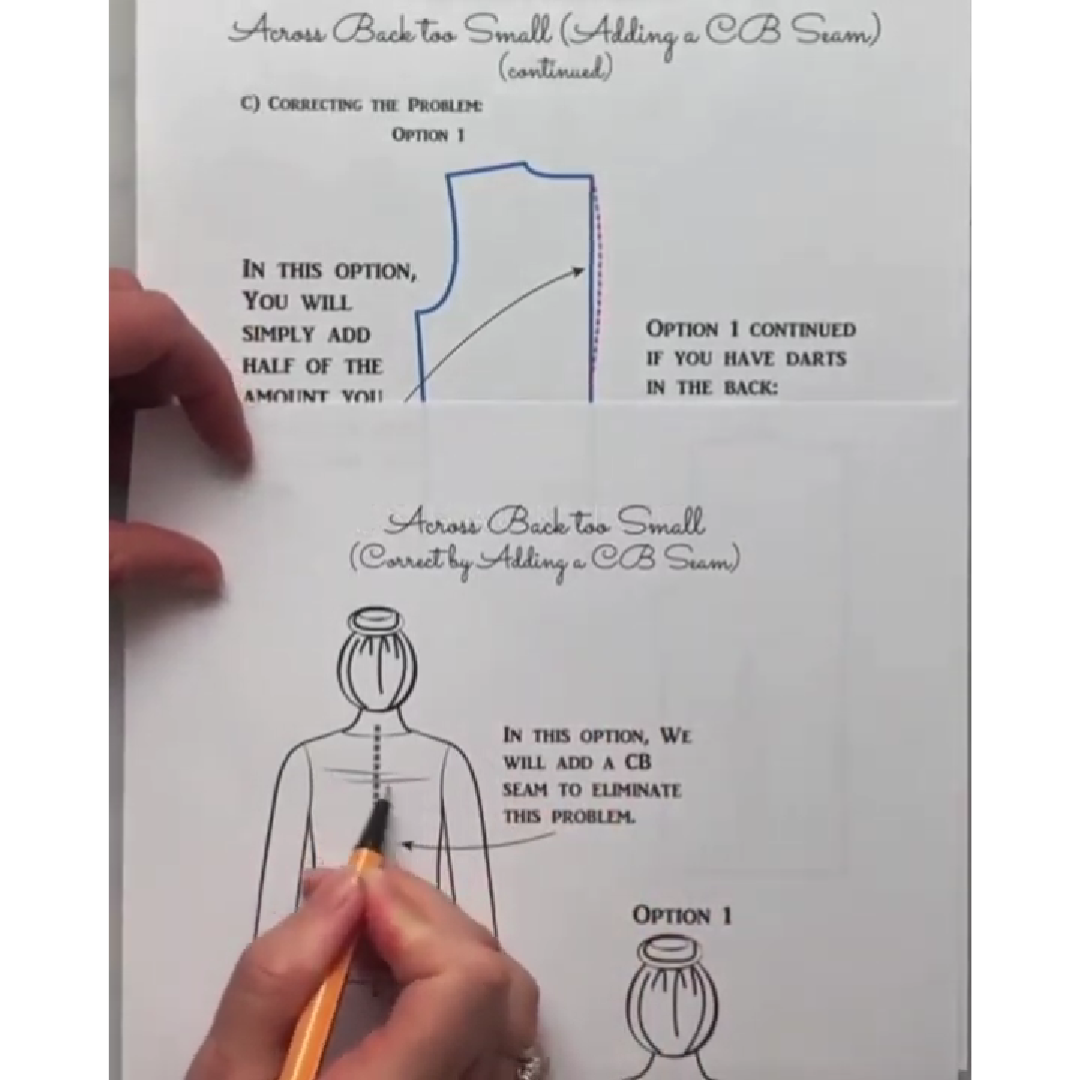 Across Back too Small (Adding a CB Seam)
(continued)
C) Correcting the Problem:
Option 1
In this option,
You will
simply add
half of the
amount you
Option 1 continued
if you have darts
in the back:
Across Back too Small
(Correct by Adding a CB Seam)
In this option, We
will add a CB
seam to eliminate
this problem.
Option 1